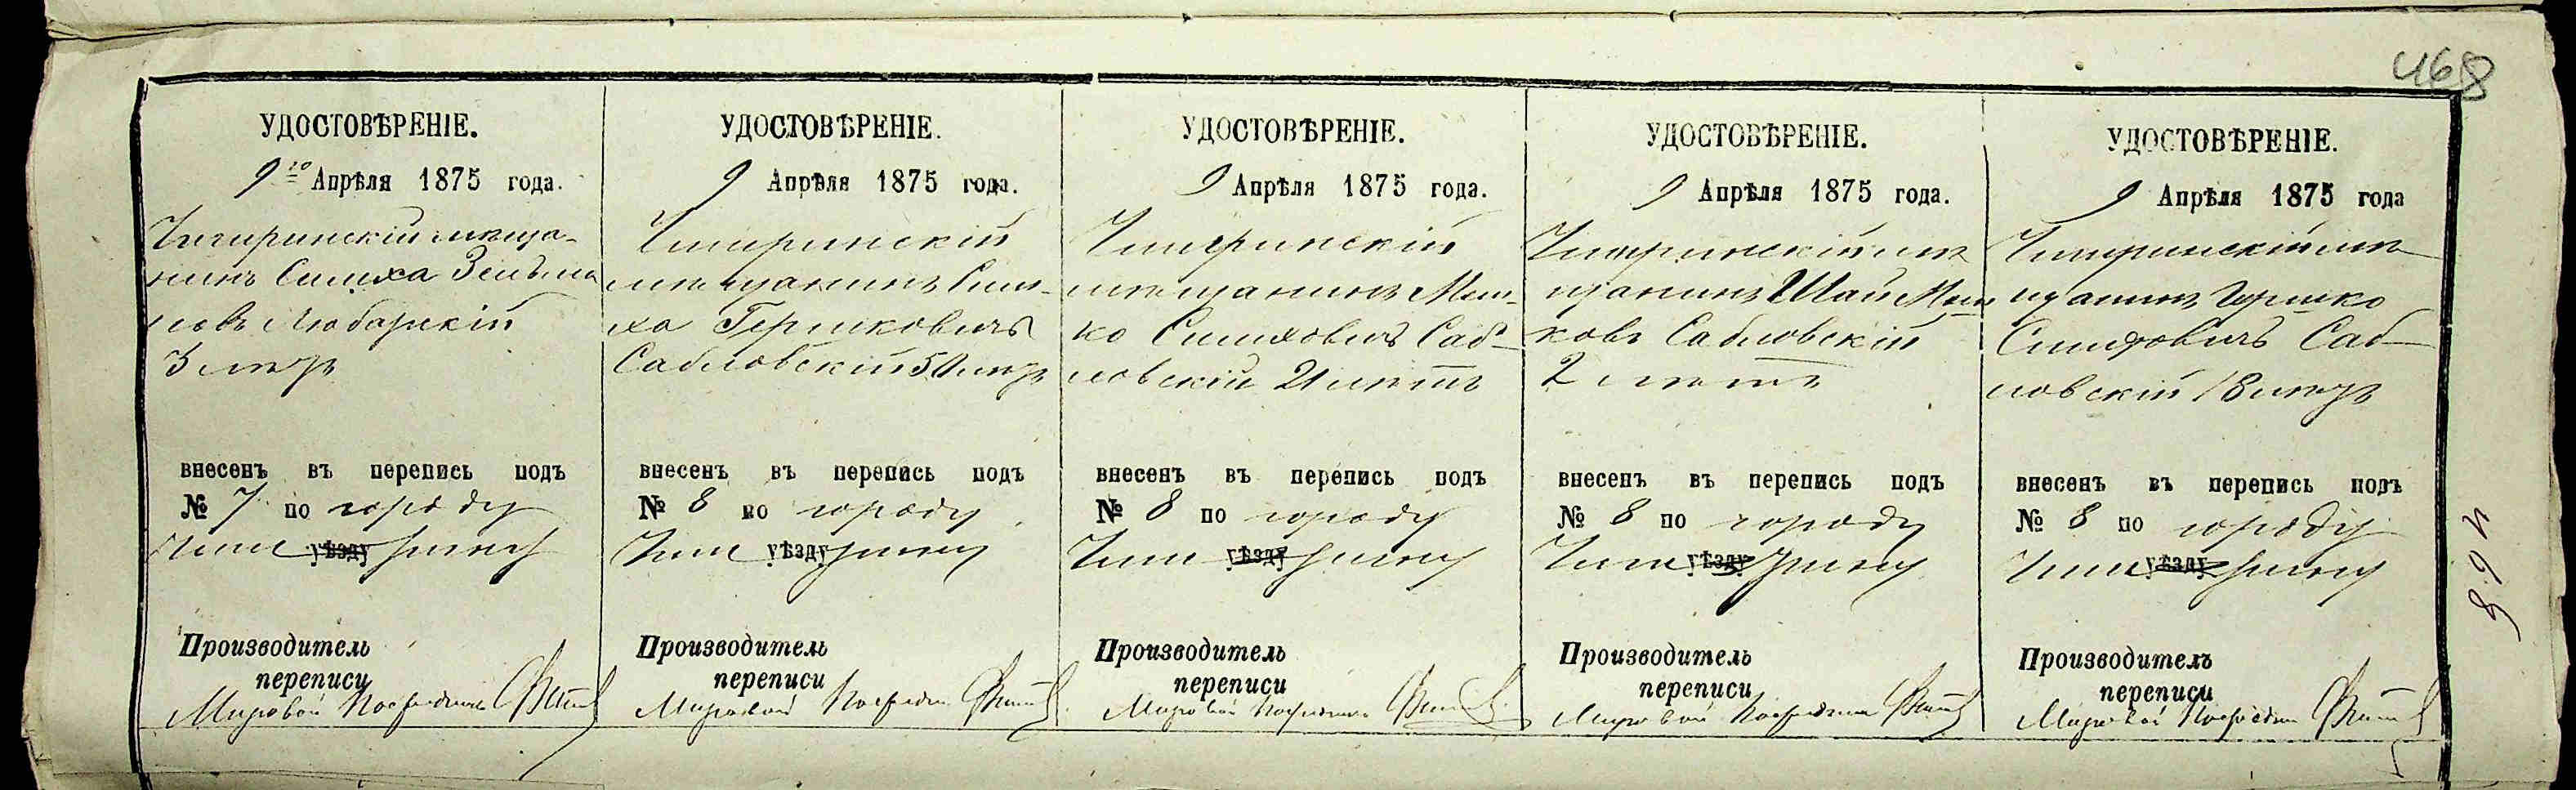 468
УДОСТОВѢРЕНІЕ.
9го Апрѣля 1875 года.
Чигиринскій мѣща-
нинъ Симха Зельма
новъ Любарскій
3 лѣтъ
внесенъ въ перепись подъ
№ 7 по городу
Чиги уѣзду рину
Производитель
переписи
Мировой Посредникъ
УДОСТОВѢРЕНІЕ.
9 Апрѣля 1875 года.
Чигиринскій
мѣщанинъ Сим-
ха Гершковичъ
Сабловскій 50 лѣтъ
внесенъ въ перепись подъ
№ 8 по городу
Чиги уѣзду рину
Производитель
переписи
Мировой Посредн
УДОСТОВѢРЕНІЕ.
9 Апрѣля 1875 года.
Чигиринскій
мѣщанинъ Мош-
ко Симховичъ Саб-
ловскій 21 лѣтъ
внесенъ въ перепись подъ
№ 8 по городу
Чиги уѣзду рину
Производитель
переписи
Мировой Посредникъ
УДОСТОВѢРЕНІЕ.
9 Апрѣля 1875 года.
Чигиринскій мѣ
щанинъ Шай Мош
ковъ Сабловскій
2 лѣтъ
внесенъ въ перепись подъ
№ 8 по городу
Чиги уѣзду рину
Производитель
переписи
Мировой Посредник
УДОСТОВѢРЕНІЕ.
9 Апрѣля 1875 года
Чигиринскій мѣ
щанинъ Гершко
Симховичъ Саб
ловскій 18 лѣтъ
внесенъ въ перепись подъ
№ 8 по городу
Чиги уѣзду рину
Производитель
переписи
Мировой Посредник
468